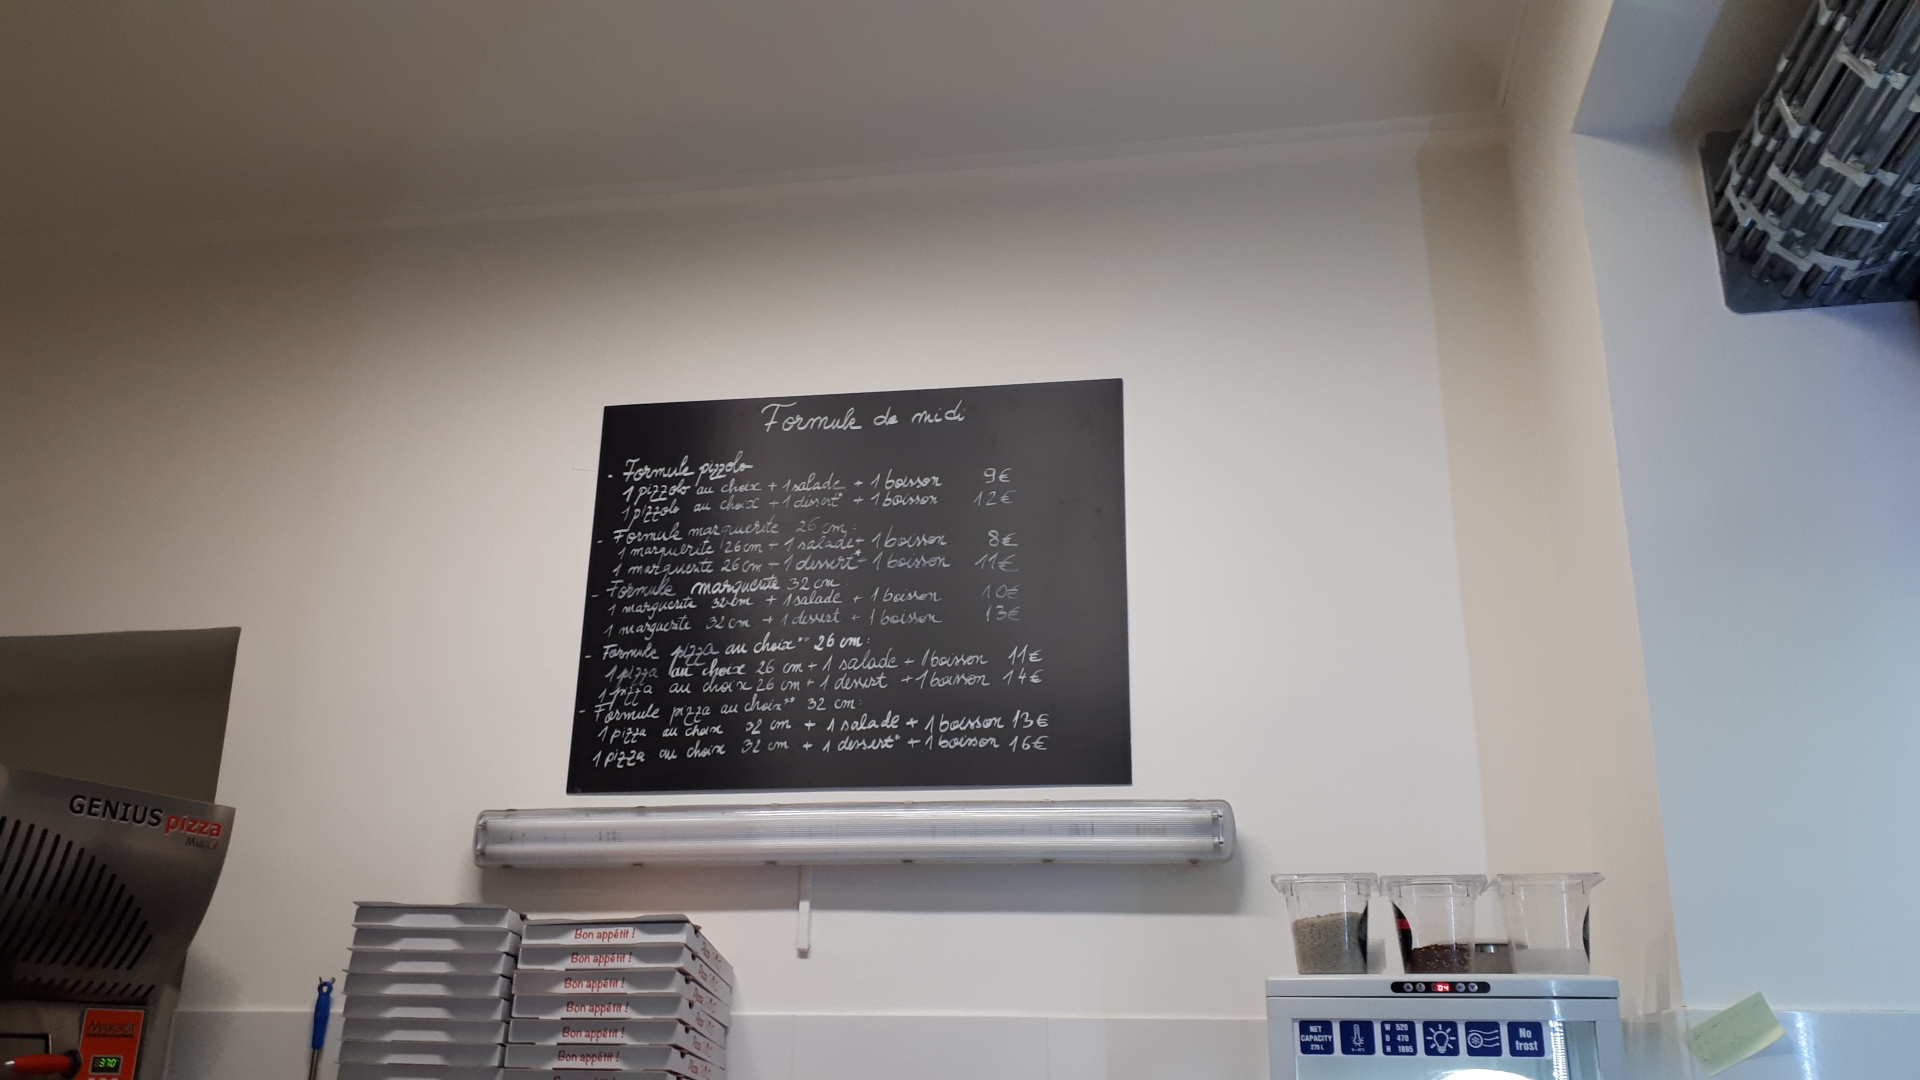 Formule de midi
- Formule pizzolo
1 pizzolo au choix + 1 salade + 1 boisson 9€
1 pizzolo au choix + 1 dessert* + 1 boisson 12€
- Formule marguerite 26 cm:
1 marguerite 26cm + 1 salade + 1 boisson 8€
1 marguerite 26cm + 1 dessert* + 1 boisson 11€
- Formule marguerite 32 cm
1 marguerite 32cm + 1 salade + 1 boisson 10€
1 marguerite 32cm + 1 dessert + 1 boisson 13€
- Formule pizza au choix** 26 cm:
1 pizza au choix 26 cm + 1 salade + 1 boisson 11€
1 pizza au choix 26 cm + 1 dessert + 1 boisson 14€
- Formule pizza au choix** 32 cm:
1 pizza au choix 32 cm + 1 salade + 1 boisson 13€
1 pizza au choix 32 cm + 1 dessert* + 1 boisson 16€
GENIUS pizza
Bon appétit !
Bon appétit !
Bon appétit !
Bon appétit !
Bon appétit !
Bon appétit !
370
04
NET CAPACITY 270 L
W 520
D 470
H 1895
No frost